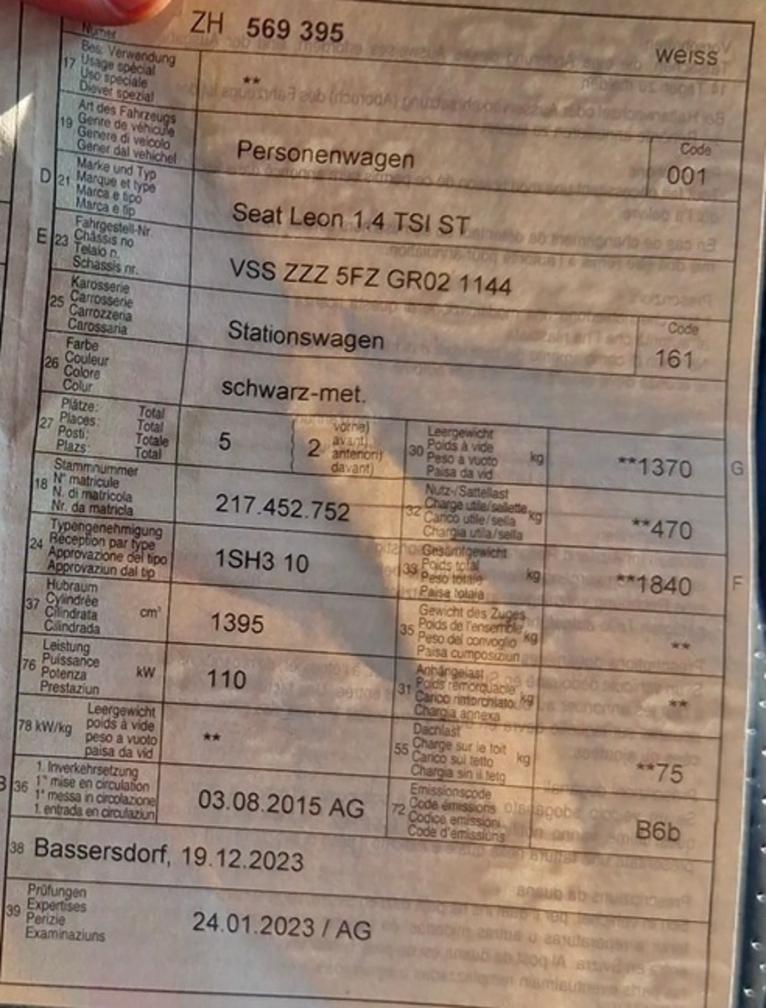 Numer
ZH 569 395
weiss
17
Bes. Verwendung
Usage spécial
Uso speciale
Diever spezial
**
19
Art des Fahrzeugs
Genre de véhicule
Genere di veicolo
Gener dal vehichel
Personenwagen
Code
001
D
21
Marke und Typ
Marque et type
Marca e tipo
Marca e tip
Seat Leon 1.4 TSI ST
E
23
Fahrgestell-Nr
Châssis no
Telaio n.
Schassis nr.
VSS ZZZ 5FZ GR02 1144
25
Karosserie
Carrosserie
Carrozzeria
Carossaria
Stationswagen
Code
161
26
Farbe
Couleur
Colore
Colur
schwarz-met.
27
Plätze: Total
Places: Total
Posti: Totale
Plazs: Total
5
2
vorne)
avant)
anteriori)
davant)
30
Leergewicht
Poids à vide
Peso a vuoto
Paisa da vid
kg
**1370
G
18
Stammnummer
N° matricule
N. di matricola
Nr. da matricla
217.452.752
32
Nutz-/Sattellast
Charge utile/sellette
Carico utile/sella
Chargia utila/sella
kg
**470
24
Typengenehmigung
Réception par type
Approvazione del tipo
Approvaziun dal tip
1SH3 10
33
Gesamtgewicht
Poids total
Peso totale
Paisa totala
kg
**1840
F
37
Hubraum
Cylindrée
Cilindrata
Cilindrada
cm³
1395
35
Gewicht des Zuges
Poids de l'ensemble
Peso del convoglio
Paisa cumposiziun
kg
**
76
Leistung
Puissance
Potenza
Prestaziun
kW
110
31
Anhängelast
Poids remorquable
Carico rimorchiato
Chargia annexa
kg
**
78 kW/kg
Leergewicht
poids à vide
peso a vuoto
paisa da vid
**
55
Dachlast
Charge sur le toit
Carico sul tetto
Chargia sin il tetg
kg
**75
B
36
1. Inverkehrsetzung
1° mise en circulation
1° messa in circolazione
1. entrada en circulaziun
03.08.2015 AG
72
Emissionscode
Code émissions
Codice emissioni
Code d'emissiuns
B6b
38
Bassersdorf, 19.12.2023
39
Prüfungen
Expertises
Perizie
Examinaziuns
24.01.2023 / AG